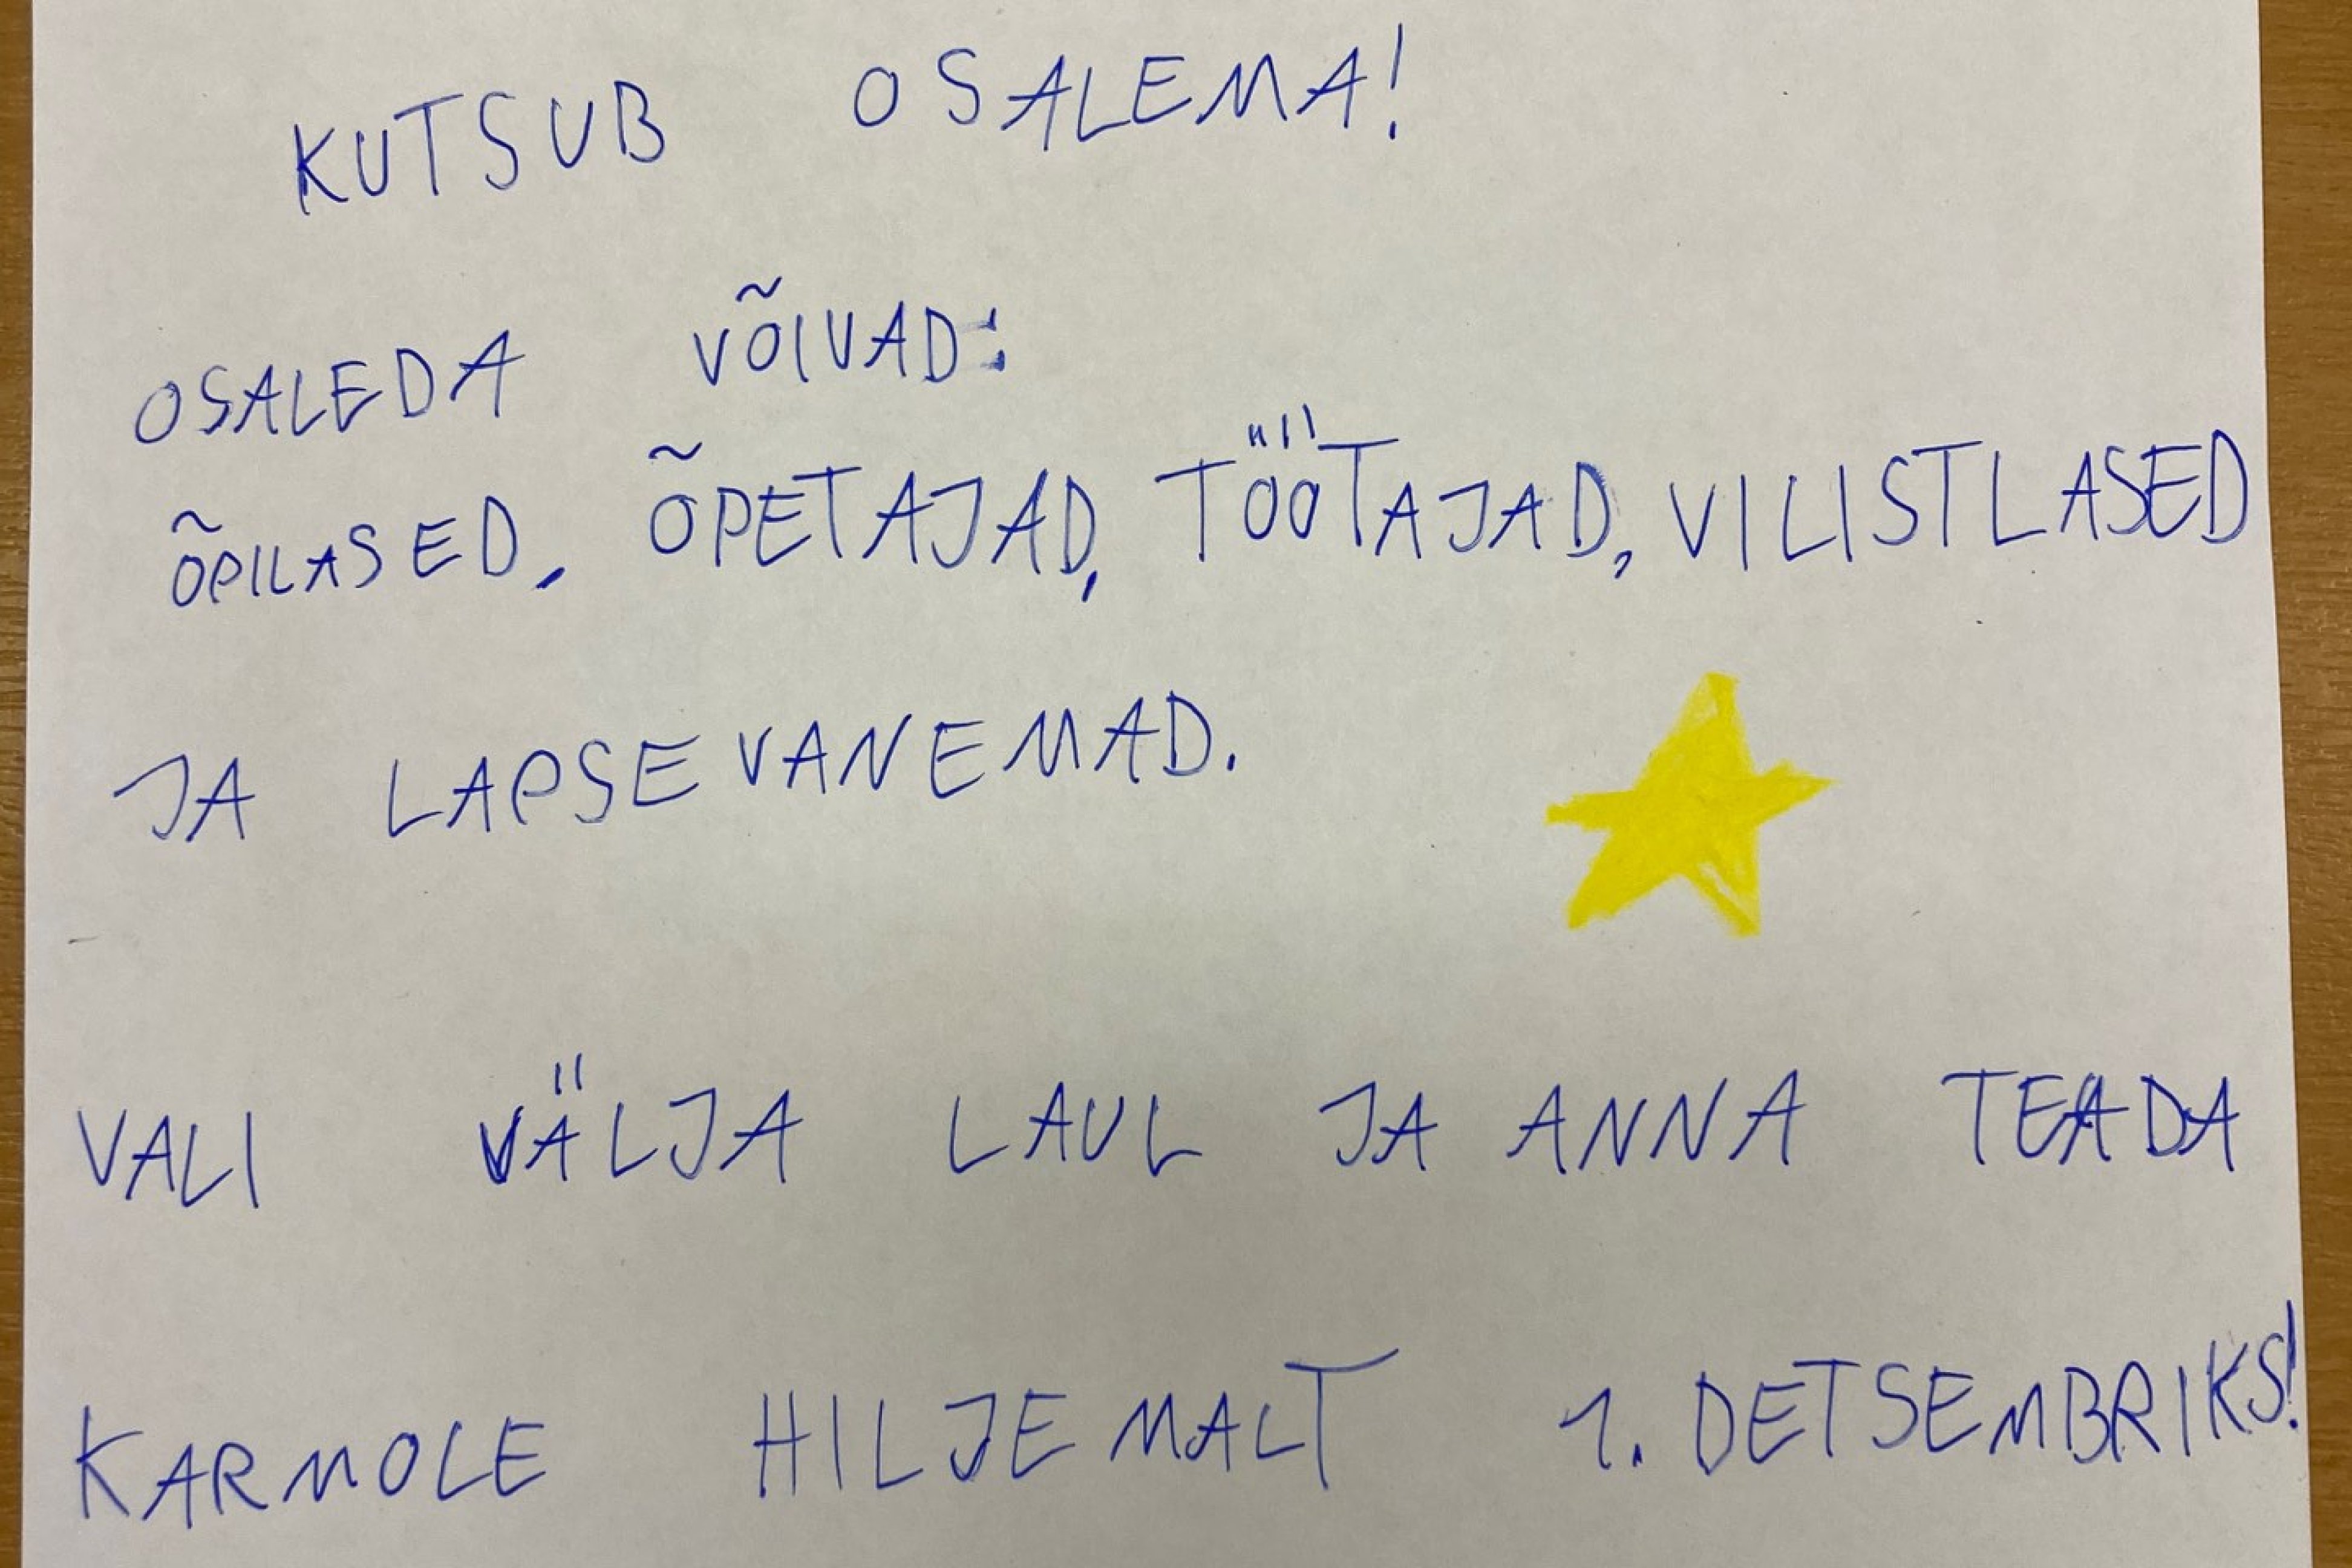 KUTSUB OSALEMA!
OSALEDA VÕIVAD:
ÕPILASED, ÕPETAJAD, TÖÖTAJAD, VILISTLASED
JA LAPSEVANEMAD.
VALI VÄLJA LAUL JA ANNA TEADA
KARMOLE HILJEMALT 1. DETSEMBRIKS!